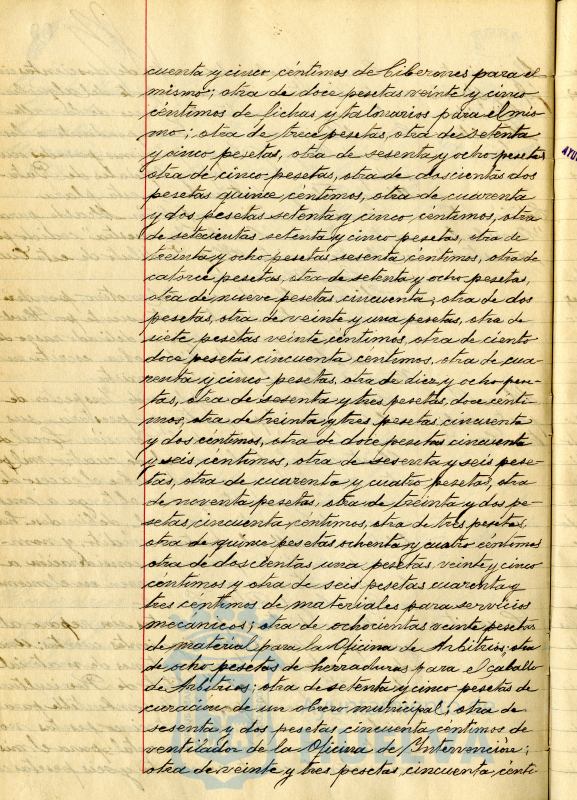 cuenta y cinco céntimos de Biberones para el
mismo; otra de doce pesetas veinte y cinco
céntimos de fichas y talonarios para el mis-
mo; otra de trece pesetas, otra de setenta
y cinco pesetas, otra de sesenta y ocho pesetas
otra de cinco pesetas, otra de doscientas dos
pesetas quince céntimos, otra de cuarenta
y dos pesetas setenta y cinco centimos, otra
de setecientas setenta y cinco pesetas, otra de
treinta y ocho pesetas sesenta centimos, otra de
catorce pesetas, otra de setenta y ocho pesetas,
otra de nueve pesetas cincuenta, otra de dos
pesetas, otra de veinte y una pesetas, otra de
siete pesetas veinte centimos, otra de ciento
doce pesetas cincuenta céntimos, otra de cua-
renta y cinco pesetas, otra de diez y ocho pese-
tas, otra de sesenta y tres pesetas, doce cénti-
mos, otra de treinta y tres pesetas cincuenta
y dos centimos, otra de doce pesetas cincuenta
y seis céntimos, otra de sesenta y seis pese-
tas, otra de cuarenta y cuatro pesetas, otra
de noventa pesetas, otra de treinta y dos pe-
setas cincuenta centimos, otra de tres pesetas,
otra de quince pesetas ochenta y cuatro céntimos
otra de doscientas una pesetas veinte y cinco
centimos y otra de seis pesetas cuarenta y
tres céntimos de materiales para servicios
mecánicos; otra de ochocientas veinte pesetas
de material para la Oficina de Arbitrios; otra
de ocho pesetas de herraduras para el caballo
de Arbitrios; otra de setenta y cinco pesetas de
curacion de un obrero municipal; otra de
sesenta y dos pesetas cincuenta céntimos de
ventilador de la Oficina de Intervención;
otra de veinte y tres pesetas cincuenta cénti-